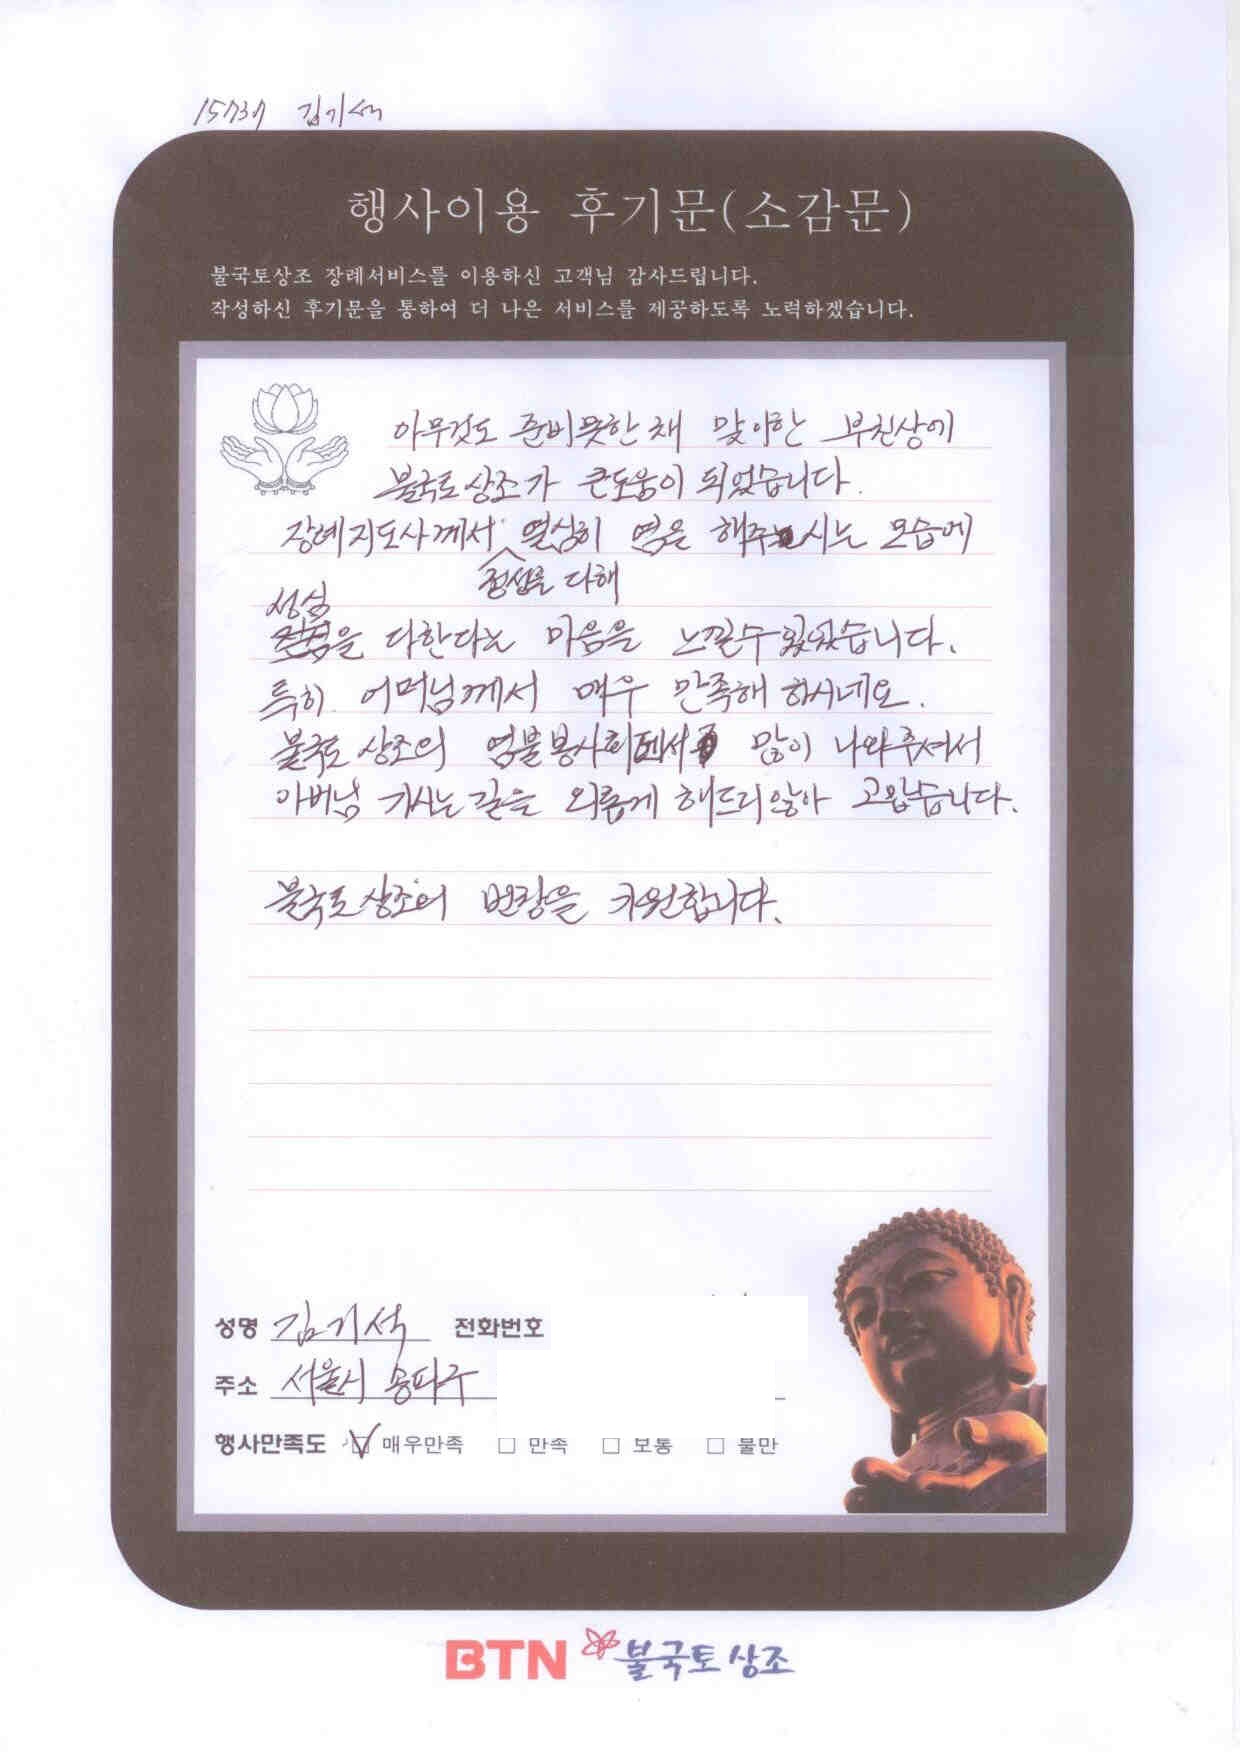 15737 김기석
행사이용 후기문(소감문)
불국토상조 장례서비스를 이용하신 고객님 감사드립니다.
작성하신 후기문을 통하여 더 나은 서비스를 제공하도록 노력하겠습니다.
아무것도 준비못한채 맞이한 부친상에
불국토상조가 큰도움이 되었습니다.
장례지도사께서 열심히 염을 해주시는 모습에
정성을 다해
성심
을 다한다는 마음을 느낄수 있었습니다.
특히 어머님께서 매우 만족해 하시네요.
불국토 상조의 염불봉사회에서 많이 나와주셔서
아버님 가시는 길을 외롭게 해드리않아 고맙습니다.
불국토상조의 번창을 기원합니다.
성명 김기석 전화번호
주소 서울시 송파구
행사만족도 매우만족 만족 보통 불만
BTN 불국토상조